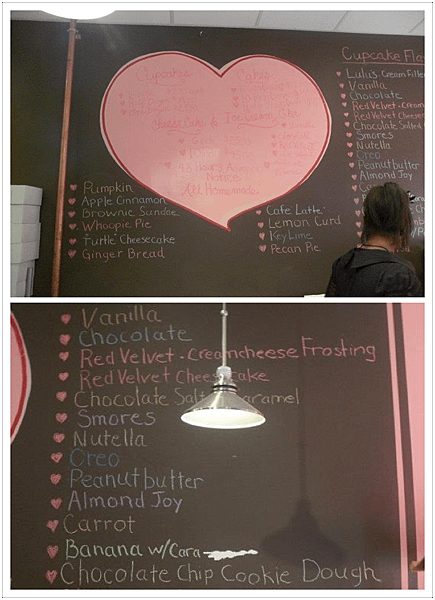 Cupcakes
Cakes
Cheese Cake & Ice Cream Cake
48 Hours Advance
Notice
All Homemade
Pumpkin
Apple Cinnamon
Brownie Sundae
Whoopie Pie
Turtle Cheesecake
Ginger Bread
Cafe Latte
Lemon Curd
Key Lime
Pecan Pie
Cupcake Fla
Lulu's Cream Fille
Vanilla
Chocolate
Red Velvet - Cream
Red Velvet Cheese
Chocolate Salted
Smores
Nutella
Oreo
Peanutbutter
Almond Joy
Vanilla
Chocolate
Red Velvet - Creamcheese Frosting
Red Velvet Cheesecake
Chocolate Salted Caramel
Smores
Nutella
Oreo
Peanutbutter
Almond Joy
Carrot
Banana w/Cara
Chocolate Chip Cookie Dough